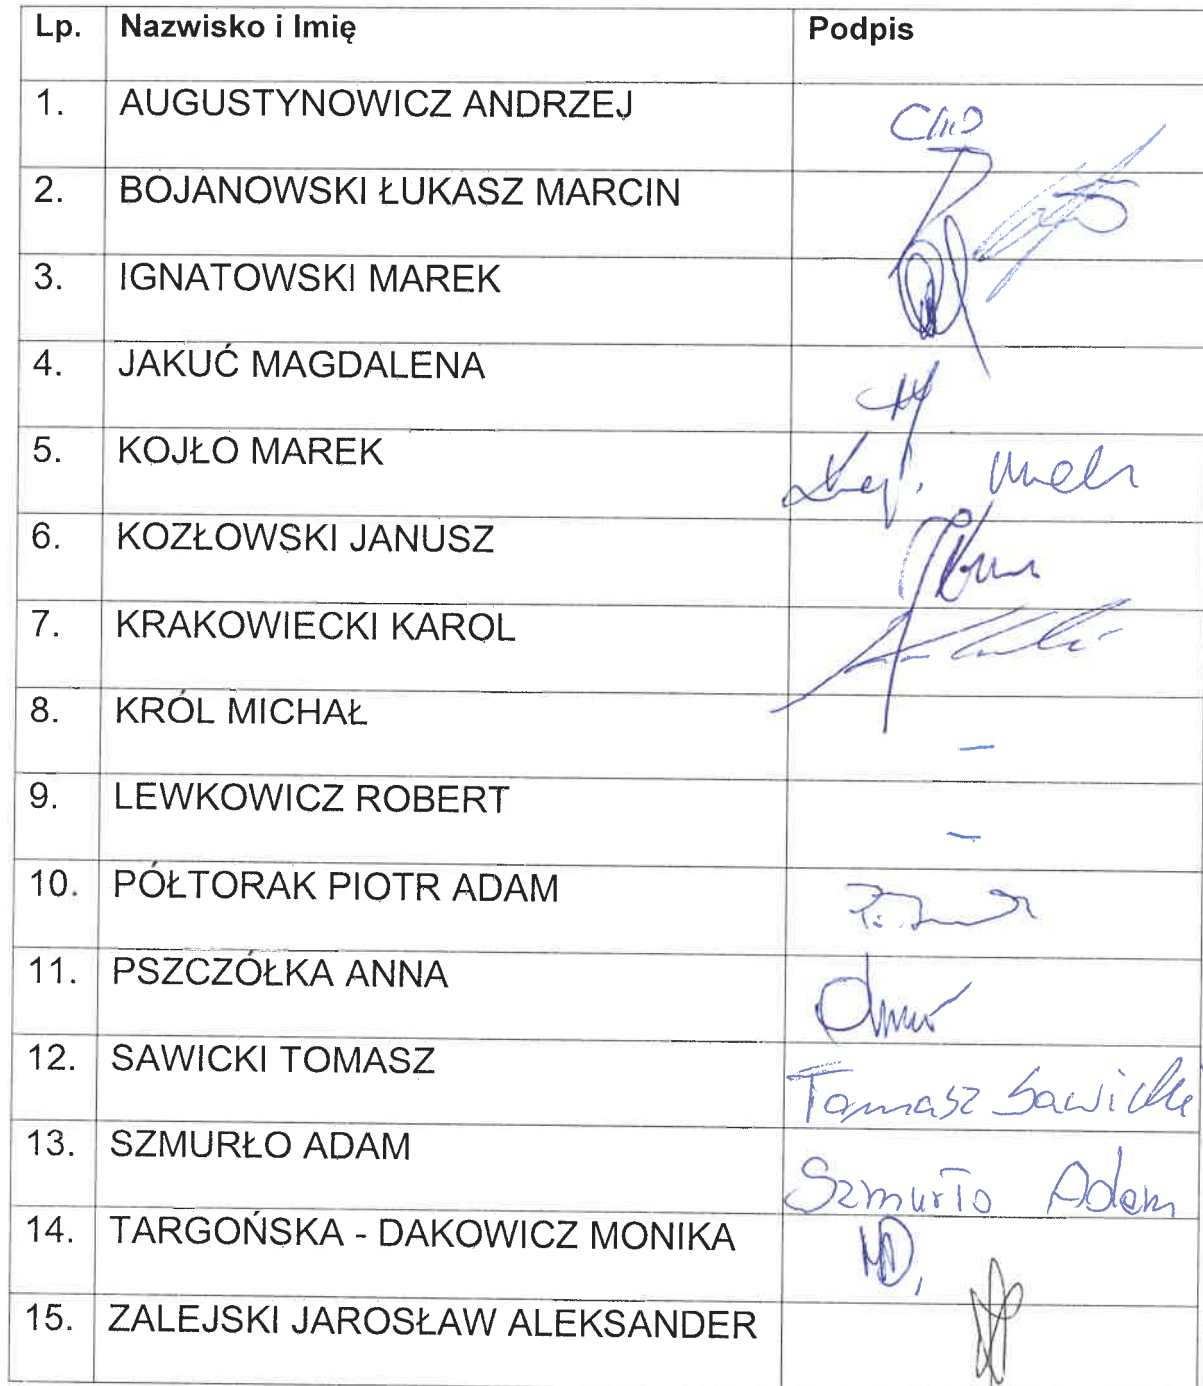 Lp. Nazwisko i Imię Podpis
1. AUGUSTYNOWICZ ANDRZEJ
2. BOJANOWSKI ŁUKASZ MARCIN
3. IGNATOWSKI MAREK
4. JAKUĆ MAGDALENA
5. KOJŁO MAREK
6. KOZŁOWSKI JANUSZ
7. KRAKOWIECKI KAROL
8. KRÓL MICHAŁ –
9. LEWKOWICZ ROBERT –
10. PÓŁTORAK PIOTR ADAM
11. PSZCZÓŁKA ANNA
12. SAWICKI TOMASZ Tomasz Sawicki
13. SZMURŁO ADAM Szmurło Adam
14. TARGOŃSKA - DAKOWICZ MONIKA MD,
15. ZALEJSKI JAROSŁAW ALEKSANDER